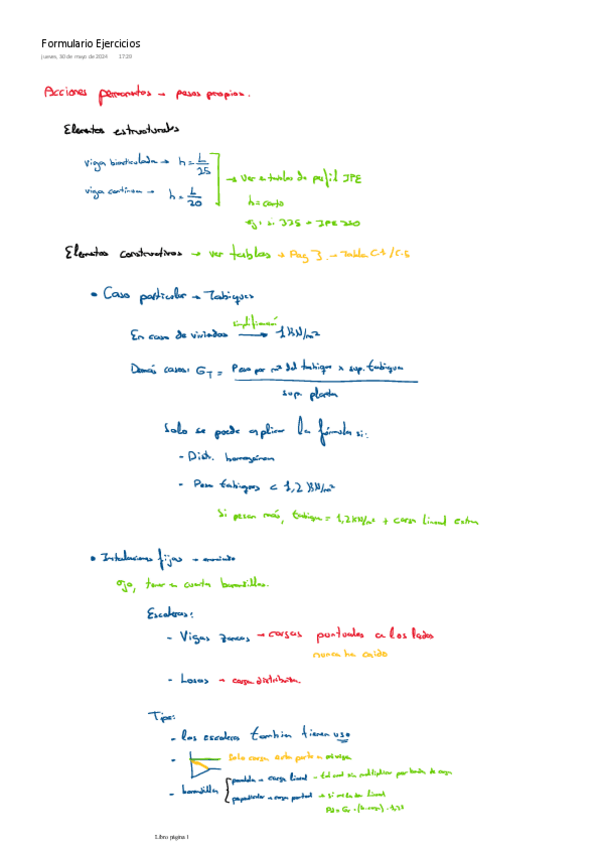 Formulario Ejercicios
jueves, 30 de mayo de 2024 17:20
Acciones permanentes → pesos propios.
Elementos estructurales
viga biarticulada → h = L/25
viga continua → h = L/20
→ Ver e tablas de perfil IPE
h = canto
ej: si 325 → IPE 330
Elementos constructivos → ver tablas → Pag 3 → Tabla C.1 / C.5
• Caso particular → Tabiques
simplificación
En caso de viviendas → 1 kN/m²
Demás casos: G_T = Peso por m² del tabique x sup. tabique / sup. planta
Solo se puede aplicar la fórmula si:
- Dist. homogénea
- Peso tabiques < 1,2 kN/m²
Si pesan más, tabique = 1,2 kN/m² + carga lineal extra
• Instalaciones fijas →
Ojo, tener en cuenta barandillas.
Escaleras:
- Vigas zancas → cargas puntuales a los lados
nunca ha caido
- Losas → carga distribuida.
Tips:
- las escaleras tambien tienen uso
- Solo carga esta parte a
- barandillas
paralela → carga lineal → tal cual sin multiplicar por
perpendicular → carga puntual → si
Libro página 1